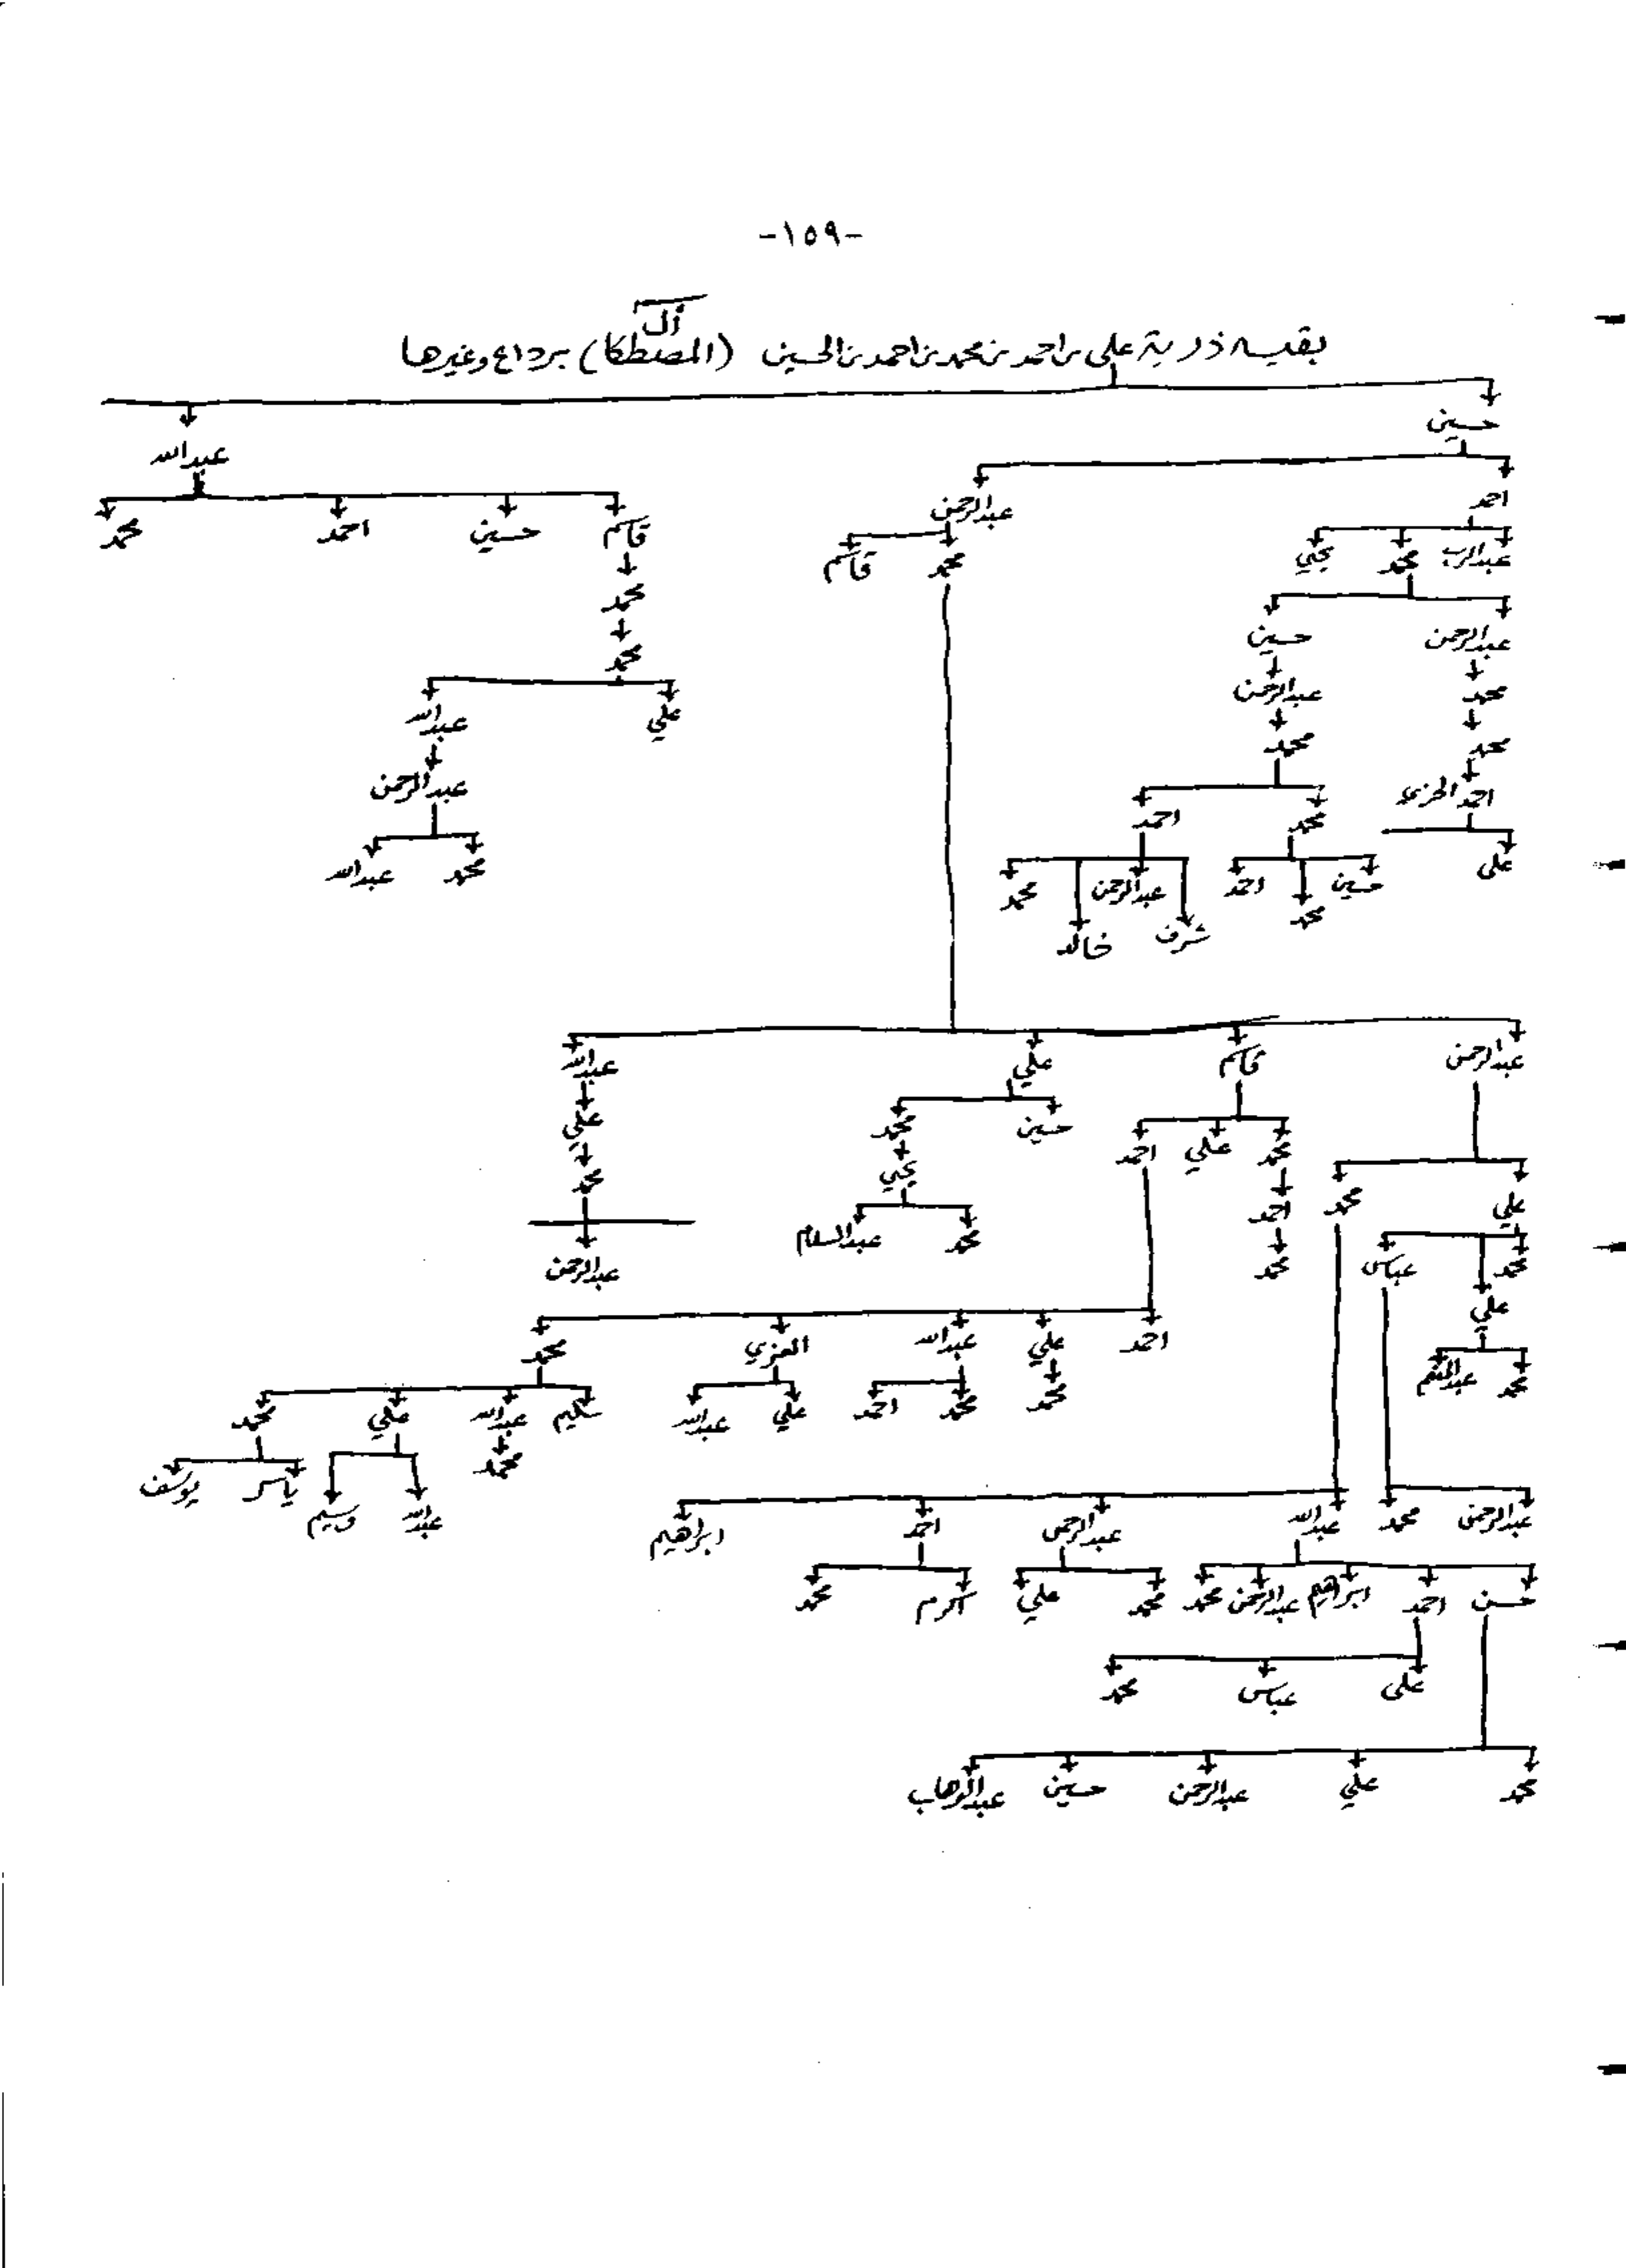 -١٥٩-
آل
بقية ذرية علي بن احمد بن محمد بن احمد بن الحسين (المصطكا) برداع وغيرها
حسين
عبدالله
احمد عبدالرحمن
قاسم حسين احمد محمد
عبدالرب محمد يحيى محمد قاسم
محمد
عبدالرحمن حسين
محمد
محمد عبدالرحمن
علي عبدالله
محمد محمد
احمد عبدالرحمن
محمد احمد
علي حسين احمد عبدالرحمن محمد محمد عبدالله
محمد
شرف خالد
عبدالرحمن قاسم علي عبدالله
حسين محمد علي
محمد علي احمد
يحيى محمد
علي محمد احمد
محمد عبدالسلام
محمد عباس محمد عبدالرحمن
علي
احمد علي عبدالله العزي محمد
محمد عبدالمنعم
محمد محمد احمد علي عبدالله سليم عبدالله علي محمد
محمد
ياسر يوسف
عبدالله وسيم
عبدالرحمن محمد عبدالله عبدالرحمن احمد ابراهيم
حسن احمد ابراهيم عبدالرحمن محمد محمد علي اكرم محمد
علي عباس محمد
محمد علي عبدالرحمن حسين عبدالوهاب